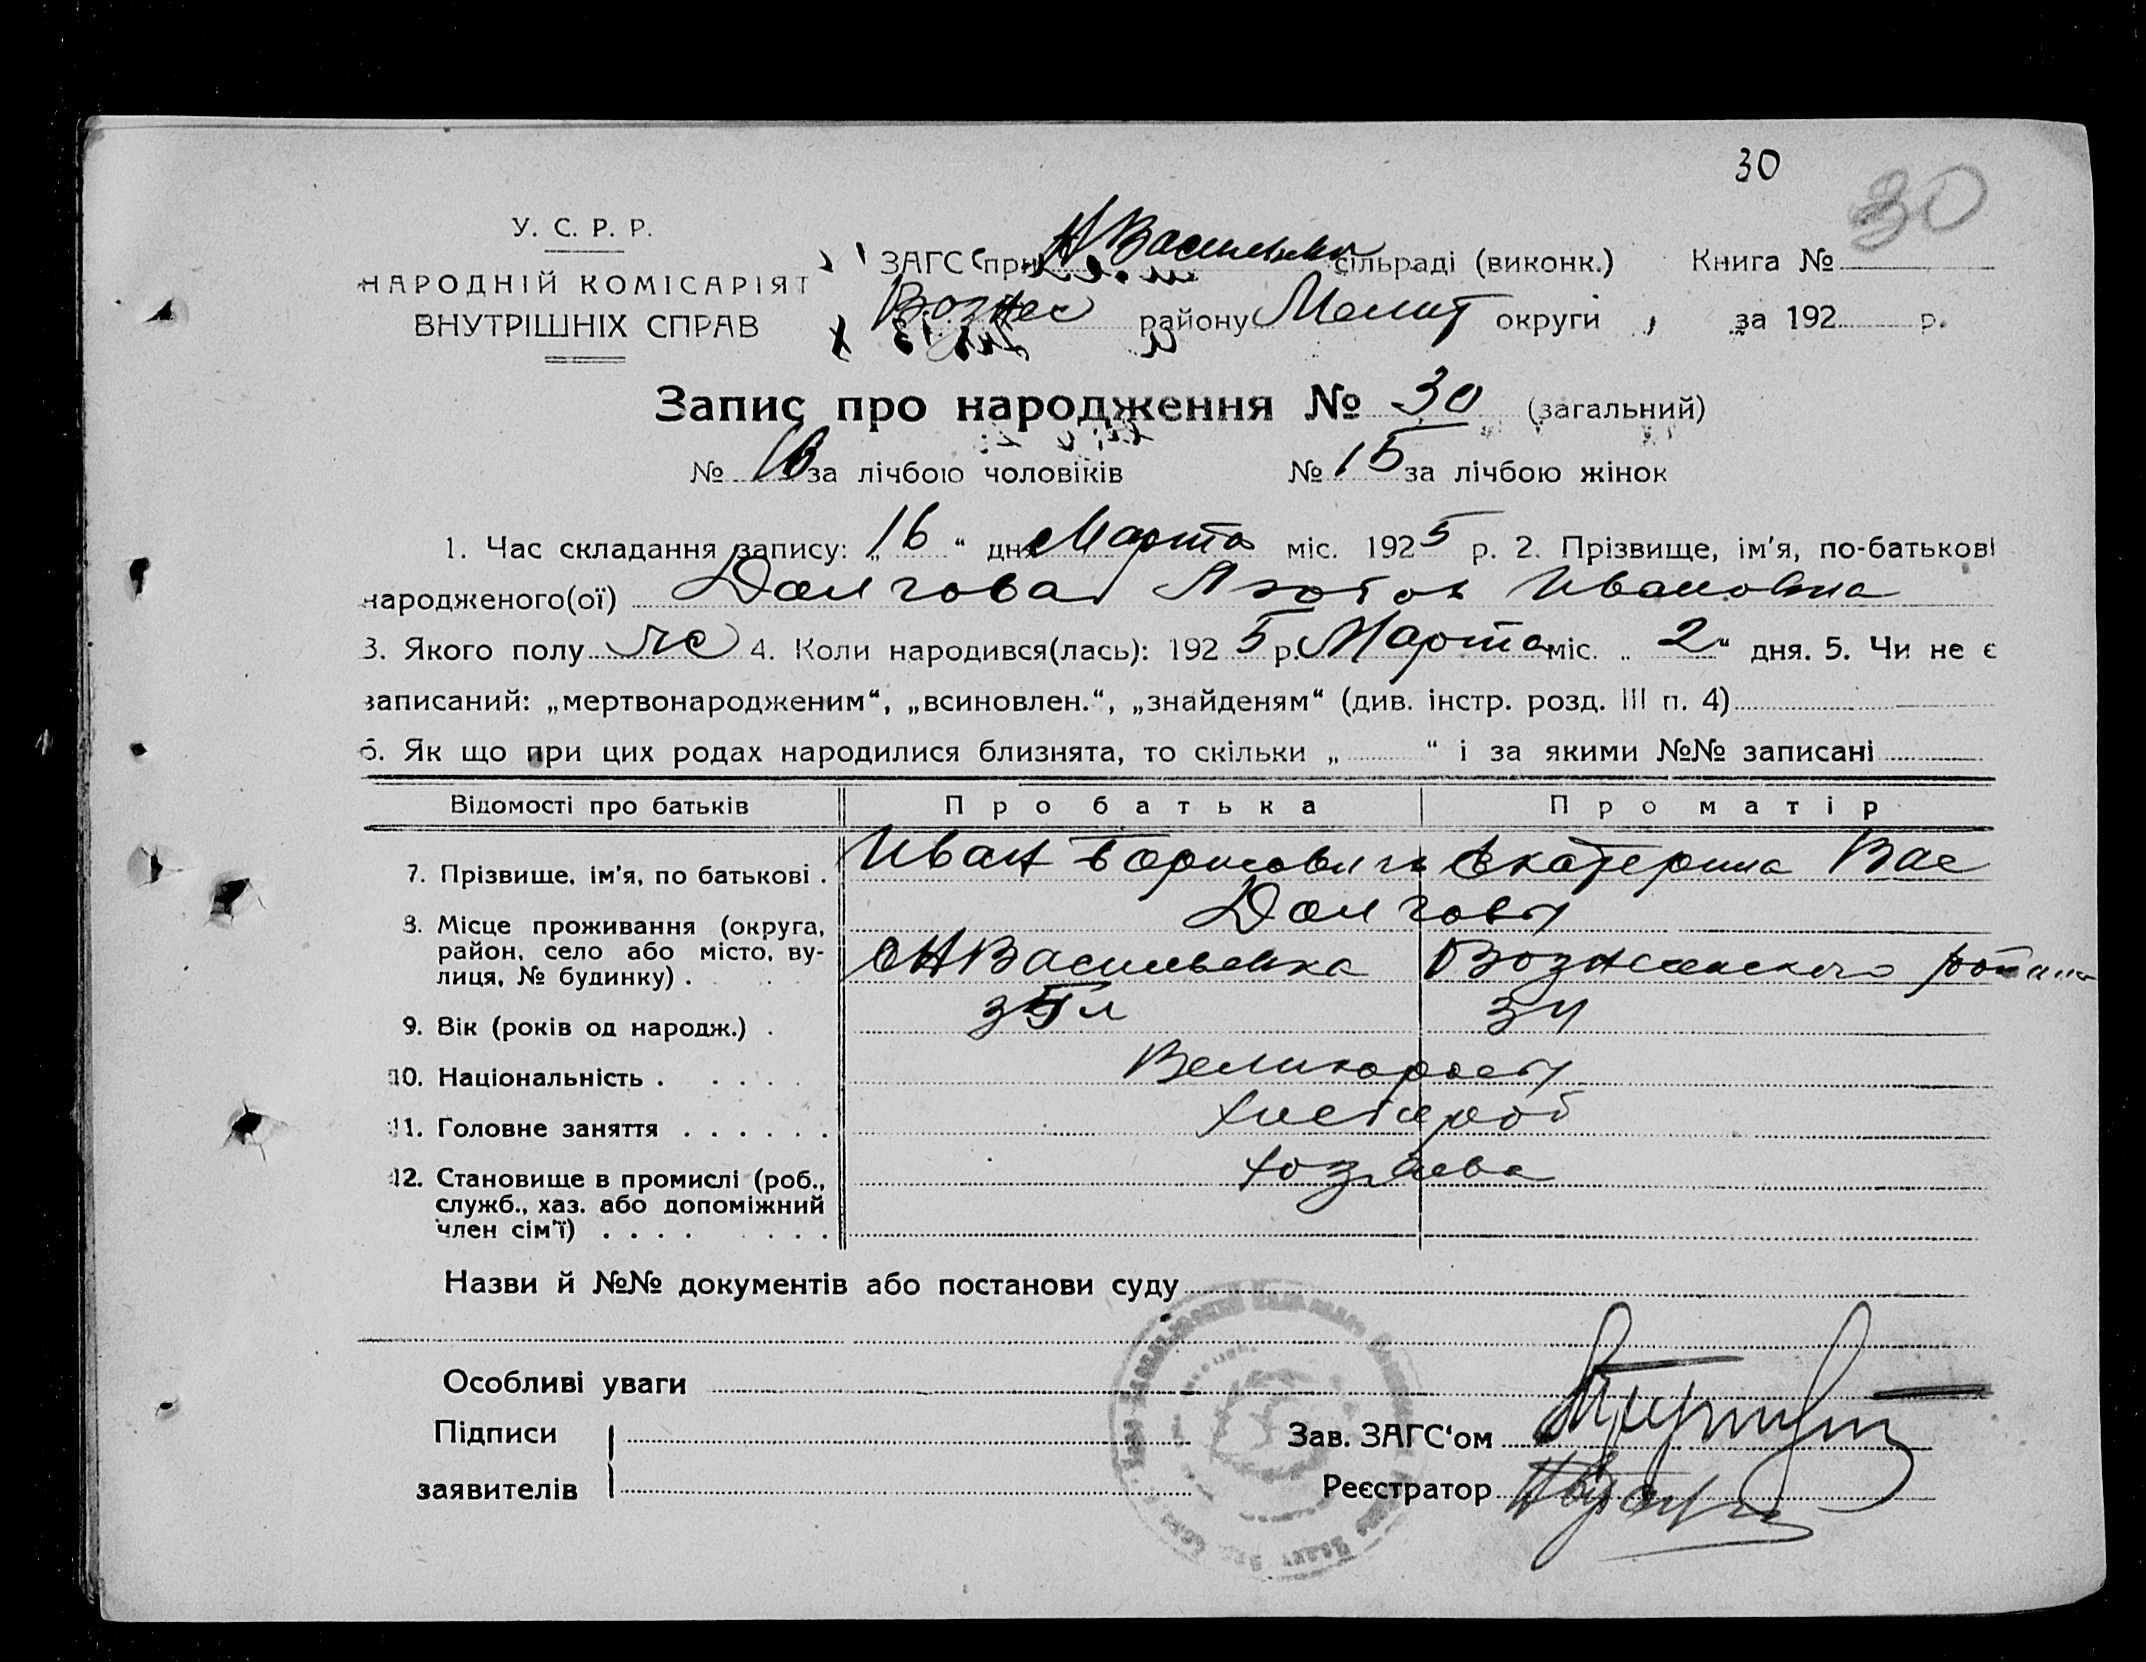 30
30
У. С. Р. Р.
НАРОДНІЙ КОМІСАРІЯТ
ВНУТРІШНІХ СПРАВ
ЗАГС при Н Васильевке сільраді (виконк.) Книга №
Вознес района Мелит округи за 192 р.
Запис про народження № 30 (загальний)
№ 16 за лічбою чоловіків № 15 за лічбою жінок
1. Час складання запису: „ 16 “ дня Марта міс. 1925 р. 2. Прізвище, ім'я, по-батькові
народженого(ої) Далгова Ивановна
3. Якого полу же 4. Коли народився(лась): 1925 р. Марта міс. „ 2 “ дня. 5. Чи не є
записаний: „мертвонародженим“, „всиновлен.“, „знайденям“ (див. інстр. розд. III п. 4)
6. Як що при цих родах народилися близнята, то скільки „ “ і за якими №№ записані
Відомості про батьків Про батька Про матір
7. Прізвище, ім'я, по батькові . Иван Борисович Екатерина Вас
Далговы
8. Місце проживання (округа,
район, село або місто, ву-
лиця, № будинку) . Васильевка Вознесенского
9. Вік (років од народж.) . 35 л 34
10. Національність . Великороссы
11. Головне заняття хлебороб
12. Становище в промислі (роб.,
служб., хаз. або допоміжний
член сім'ї) хозяева
Назви й №№ документів або постанови суду
Особливі уваги
Підписи
заявителів
Зав. ЗАГС‘ом
Реєстратор